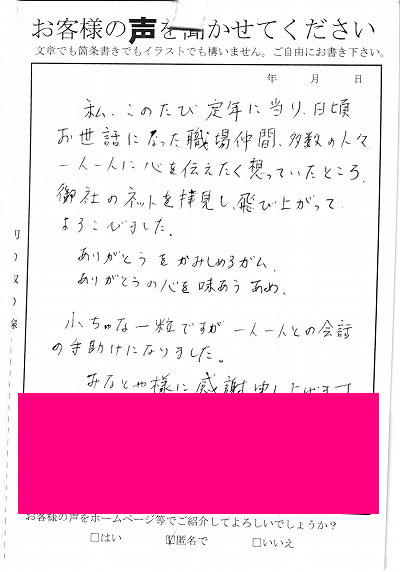 お客様の声を聞かせてください
文章でも箇条書きでもイラストでも構いません。ご自由にお書き下さい。
年 月 日
私、このたび定年に当り、日頃
お世話になった職場仲間、多数の人々
一人一人に心を伝えたく想っていたところ、
御社のネットを拝見し、飛び上がって
よろこびました。
ありがとうをかみしめるガム、
ありがとうの心を味あうあめ、
小ちゃな一粒ですが一人一人との会話
の手助けになりました。
みなとや様に感謝申し上げます
お客様の声をホームページ等でご紹介してよろしいでしょうか?
□はい ☑匿名で □いいえ